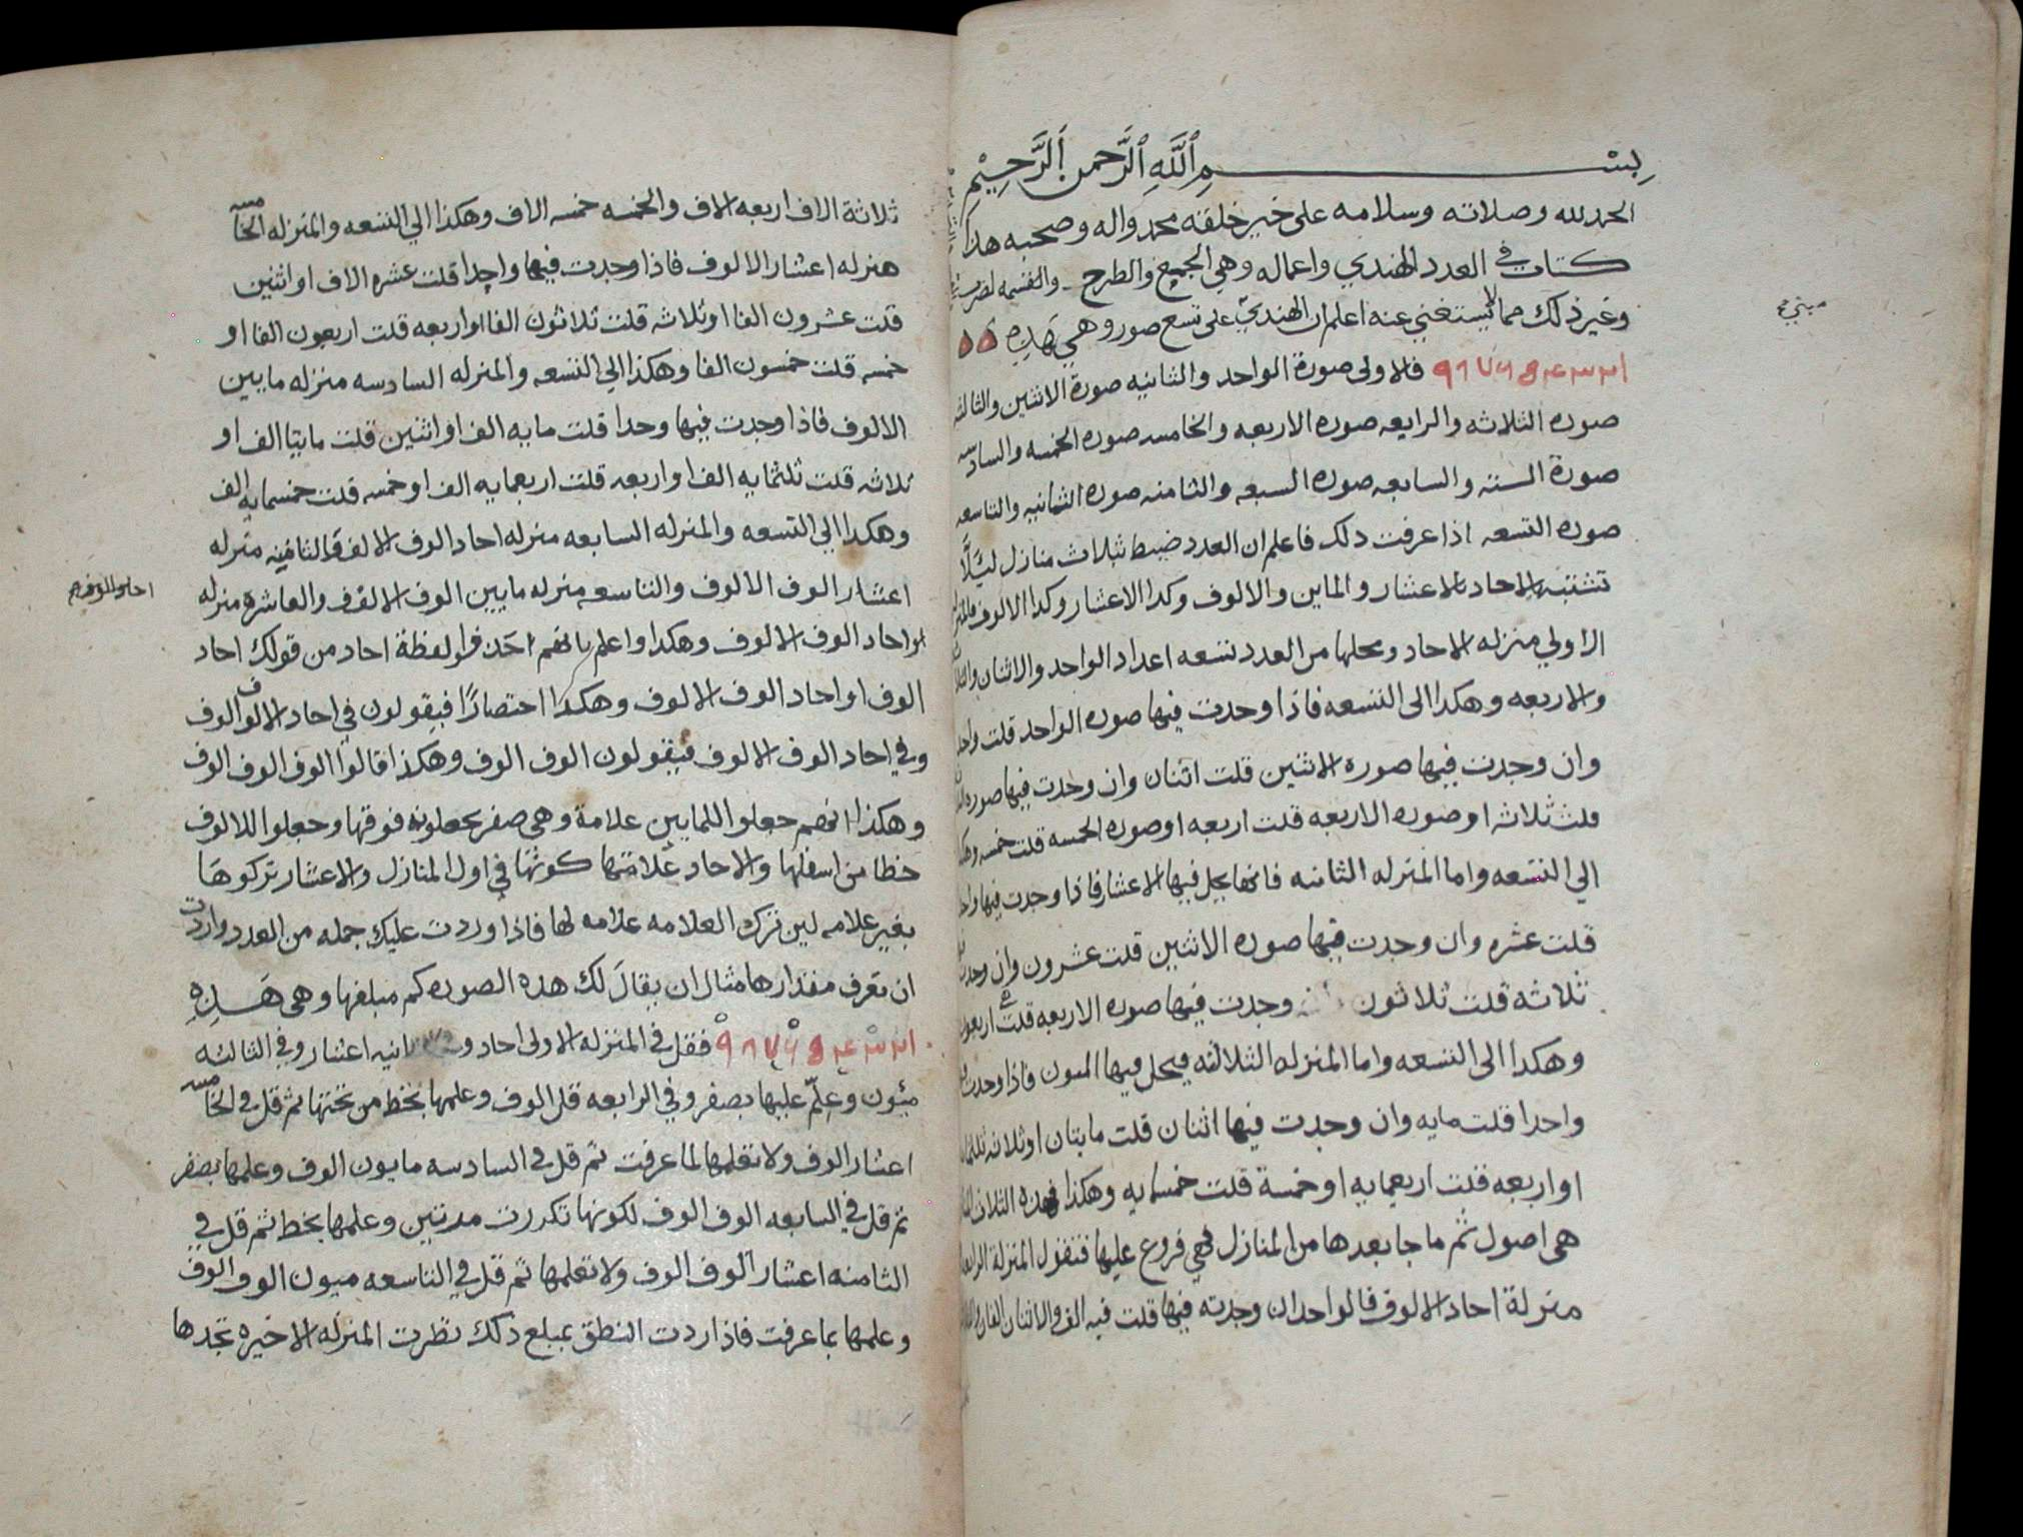 بسم الله الرحمن الرحيم
الحمد لله وصلاته وسلامه على خير خلقه محمد واله وصحبه هذا
كتاب في العدد الهندي واعماله وهي الجمع والطرح والقسمه لضرب
وغير ذلك مما لا يستغني عنه اعلم ان الهندي على تسع صور وهي هذه
١٢٣٤٥٦٧٨٩ فالاولى صورة الواحد والثانيه صورة الاثنين والثالثه
صوره الثلاثه والرابعه صوره الاربعه والخامسه صوره الخمسه والسادسه
صورة السته والسابعه صوره السبعه والثامنه صوره الثمانيه والتاسعه
صوره التسعه اذا عرفت دلك فاعلم ان العدد ضبط بثلاث منازل ليلا
تشتبه الاحاد بالاعشار والماين والالوف وكدا الاعشار وكدا الالوف
الاولي منزله الاحاد ومحلها من العدد تسعه اعداد الواحد والاثنان
والاربعه وهكدا الى التسعه فاذا وحدت فيها صوره الواحد قلت واحد
وان وجدت فيها صوره الاثنين قلت اثنان وان وحدت فيها صوره
قلت ثلاثه او صوره الاربعه قلت اربعه او صوره الخمسه قلت خمسه
الي التسعه واما المنزله الثانيه فانها يحل فيها الاعشار فاذا وجدت فيها
قلت عشره وان وجدت فيها صوره الاثنين قلت عشرون وان وجدت
ثلاثه قلت ثلاثون وجدت فيها صوره الاربعه قلت اربعون
وهكدا الى التسعه واما المنزله الثلاثه فيحل فيها الميون فاذا وجدت
واحدا قلت مايه وان وجدت فيها اثنان قلت مايتان او ثلاثه
او اربعه قلت اربعمايه او خمسة قلت خمسمايه وهكذا فهذه الثلاث
هى اصول ثم ما جا بعدها من المنازل فهي فروع عليها فتقول المنزلة الرابعه
منزلة احاد الالوف فالواحد ان وجدته فيها قلت فيه الف والاثنان الفان
مبني
ثلاثة الاف اربعه الاف والخمسه خمسه الاف وهكذا الي التسعه والمنزله الخامسه
منزله اعشار الالوف فاذا وجدت فيها واحدا قلت عشره الاف او اثنين
قلت عشرون الفا او ثلاثه قلت ثلاثون الفا او اربعه قلت اربعون الفا او
خمسه قلت خمسون الفا وهكذا الي التسعه والمنزله السادسه منزله مايين
الالوف فاذا وجدت فيها وحدا قلت مايه الف او اثنين قلت مايتا الف او
ثلاثه قلت ثلثمايه الف او اربعه قلت اربعمايه الف او خمسه قلت خمسمايه الف
وهكدا الي التسعه والمنزله السابعه منزله احاد الوف الالف والثامنه منزله
اعشار الوف الالوف والتاسعه منزله مايين الوف الالوف والعاشره منزله
احاد الوف الالوف وهكدا واعلم بانهم لفظة احاد من قولك احاد
الوف او احاد الوف الالوف وهكدا احتصارا فيقولون في احاد الالوف الوف
وفي احاد الوف الالوف فيقولون الوف الوف وهكذا قالوا الوف الوف الوف
وهكذا انهم جعلوا للمايين علامة وهي صفر يجعلونه فوقها وجعلوا للالوف
خطا من اسفلها والاحاد علامتها كونها في اول المنازل والاعشار تركوها
بغير علامه لين ترك العلامه علامه لها فاذا وردت عليك جمله من العدد واردت
ان تعرف مقدارها مثال ان يقال لك هذه الصوره كم مبلغها وهي هذه
١٢٣٤٥٦٧٨٩ فقل في المنزله الاولى احاد انيه اعشار وفي الثالثه
ميون وعلّم عليها بصفر وفي الرابعه قل الوف وعلمها بخط من تحتها ثم قل في الخامسه
اعشار الوف ولا تعلمها لما عرفت ثم قل في السادسه مايون الوف وعلمها بصفر
ثم قل في السابعه الوف الوف لكونها تكررت مرتين وعلمها بخط ثم قل في
الثامنه اعشار الوف الوف ولا تعلمها ثم قل في التاسعه ميون الوف الوف
وعلمها بما عرفت فاذا اردت النطق بمبلغ ذلك نظرت المنزله الاخيره تجدها